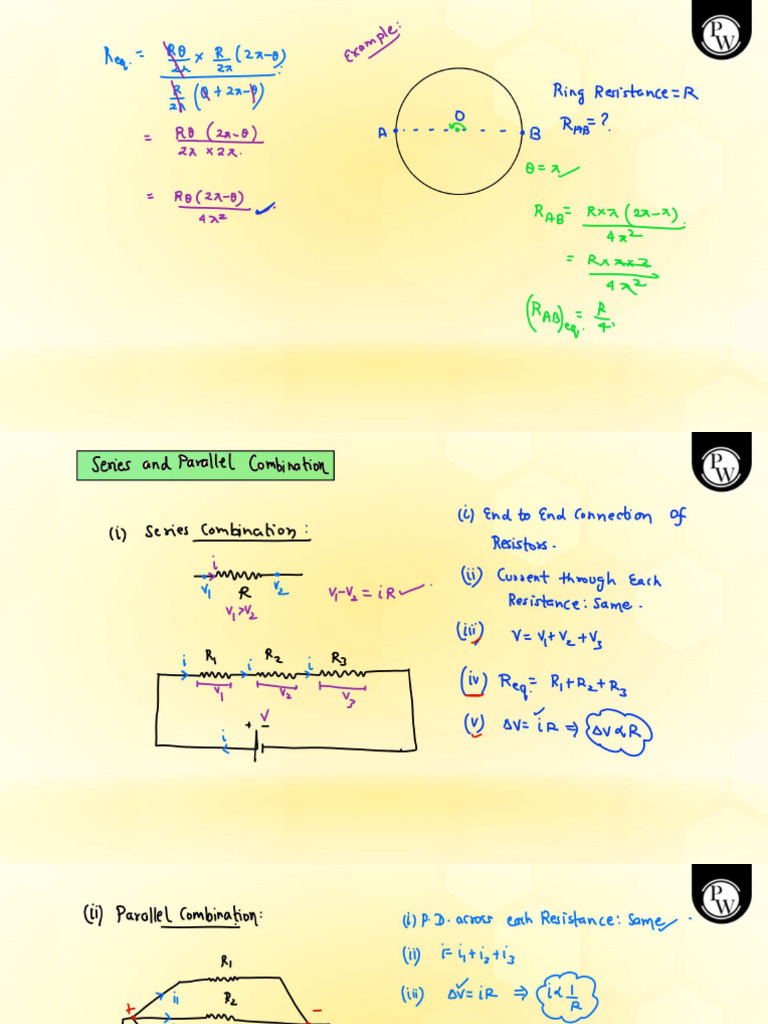 Req. = Rθ/2π × R/2π (2π-θ) / R/2π (θ + 2π-θ)
= Rθ (2π-θ) / 2π × 2π.
= Rθ(2π-θ) / 4π²
Example:
A O B
Ring Resistance = R
R_AB = ?
θ = π
R_AB = R×π (2π-π) / 4π²
= R×π×π / 4π²
(R_AB)eq. = R/4.
PW
Series and Parallel Combination
PW
(i) Series Combination:
i
V₁ R V₂
V₁>V₂
V₁-V₂ = iR
i R₁ i R₂ i R₃
V₁ V₂ V₃
+ V -
i
(i) End to End Connection of
Resistors.
(ii) Current through Each
Resistance: Same.
(iii) V = V₁+V₂+V₃
(iv) Req. = R₁+R₂+R₃
(v) ΔV = iR ⇒ ΔV∝R
PW
(ii) Parallel Combination:
R₁
i₁
R₂
+ -
(i) P.D. across each Resistance: Same.
(ii) i = i₁+i₂+i₃
(iii) ΔV = iR ⇒ i∝ 1/R